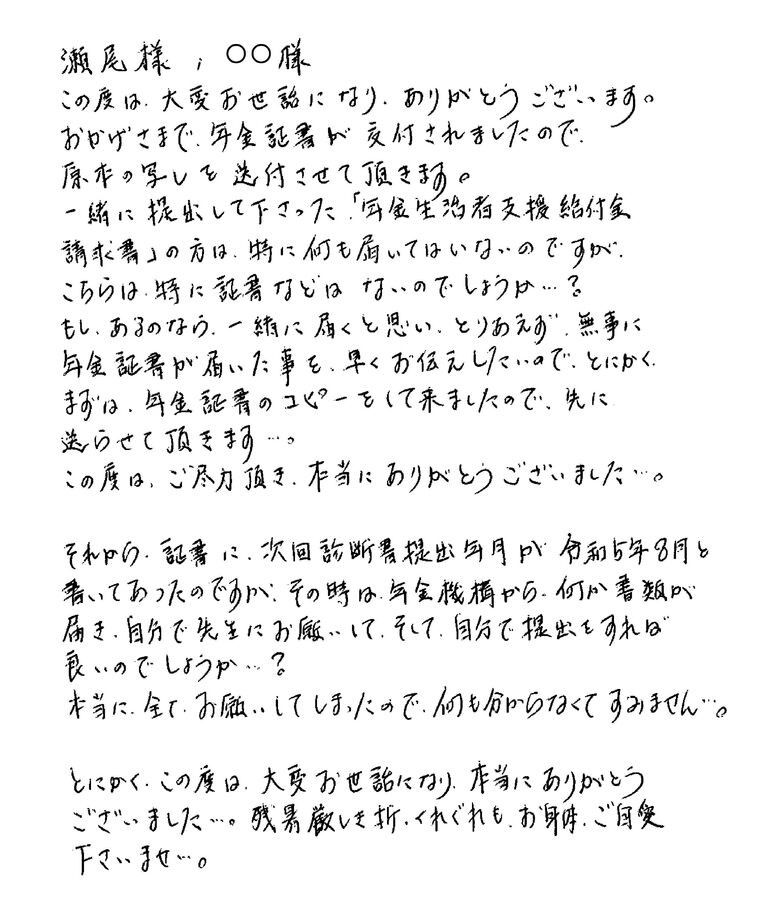 瀬尾様、○○様
この度は、大変お世話になり、ありがとうございます。
おかげさまで、年金証書が交付されましたので、
原本の写しを送付させて頂きます。
一緒に提出して下さった「年金生活者支援給付金
請求書」の方は、特に何も届いてはいないのですが、
こちらは、特に証書などはないのでしょうか…?
もし、あるのなら、一緒に届くと思い、とりあえず、無事に
年金証書が届いた事を、早くお伝えしたいので、とにかく、
まずは、年金証書のコピーをして来ましたので、先に
送らせて頂きます…。
この度は、ご尽力頂き、本当にありがとうございました…。
それから、証書に、次回診断書提出年月が令和5年8月と
書いてあったのですが、その時は、年金機構から、何か書類が
届き、自分で先生にお願いして、そして、自分で提出をすれば
良いのでしょうか…?
本当に、全て、お願いしてしまったので、何も分からなくてすみません…。
とにかく、この度は、大変お世話になり、本当にありがとう
ございました…。残暑厳しき折、くれぐれも、お身体、ご自愛
下さいませ…。